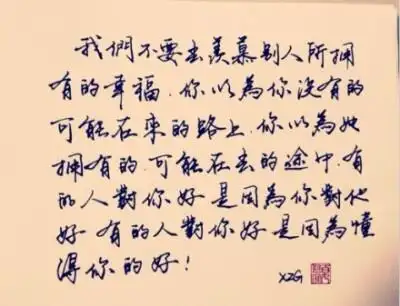 我們不要去羨慕别人所擁
有的幸福.你以為你沒有的
可能在來的路上.你以為她
擁有的.可能在去的途中.有
的人對你好是因為你對他
好 有的人對你好是因為懂
得你的好!
XZG